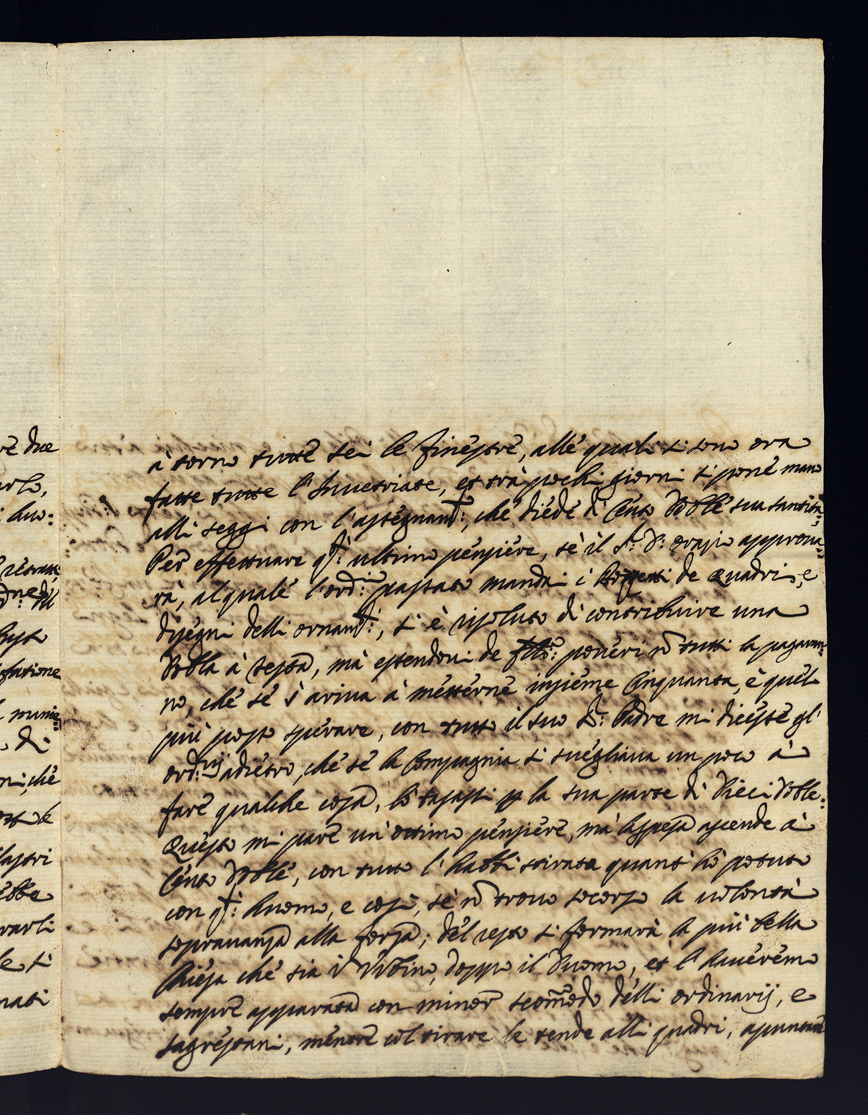 à torno tutte sei le finestre, alle quali si sono ora
fatte tutte l'Invetriate, et trà pochi giorni si pone mano
alli seggi con l'assegnam.to che diede di Cento Doble sua santità
Per effettuare q.to ultimo pensiere, se il S.r D. Orazio approva
rà, al quale l'ord.rio passato mandai i Progetti de Quadri, e
disegni delli ornam.ti, si è risoluto di contribuire una
Dobla à testa, mà essendoni de poveri nõ tutti la pagaran
no, che se s'ariva à metterne insieme Cinquanta, è quel
più posso sperare, con tutto il suo S.r Padre mi dicesse gl'
ord.rij adietro, che se la Compagnia si svegliava un poco à
fare qualche cosa, lo tasassi p la sua parte di Dieci Doble.
Questo mi pare un'ottimo pensiere, mà la spesa ascende à
Cento Doble, con tutto l'habbi stirata quant'hò potuto
con q.to huomo, e così, se nõ trovo socorso la volontà
sopravanza alla forza; del resto si formarà la più bella
Chiesa che sia in Urbino, doppo il Duomo, et l'haveremo
sempre apparata con minor scommodo delli ordinarij, e
sagrestani, mentre col tirare le tende alli quadri, apuntate
rè due
arlo,